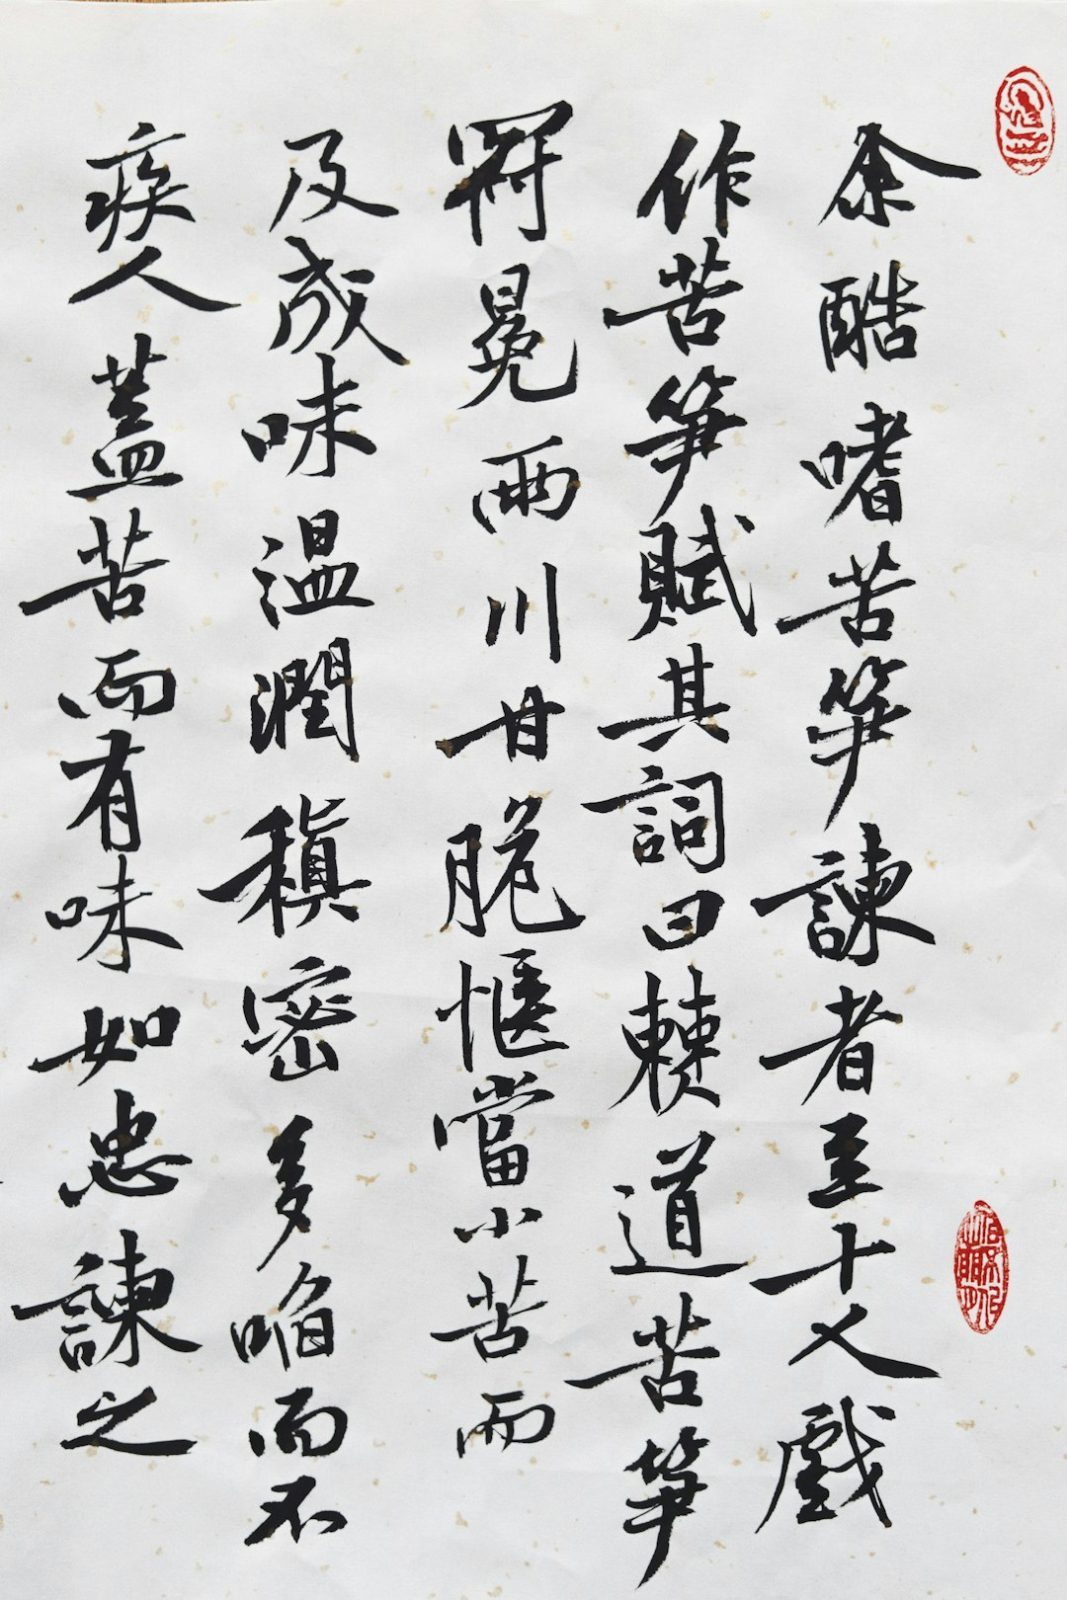 余酷嗜苦笋諫者至十人戲
作苦笋賦其詞曰僰道苦笋
冠冕兩川甘脆愜噹小苦而
及成味温潤稹密多啗而不
疾人蓋苦而有味如忠諫之